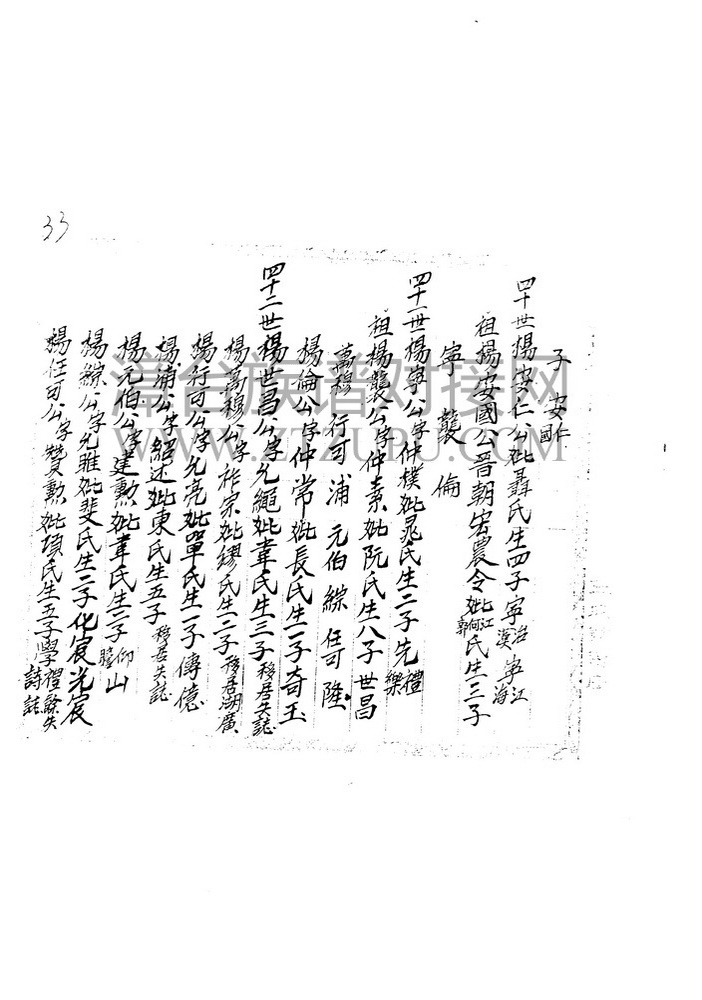 33
子 安仁 安國
四十世楊安仁公妣聶氏生四子寧治 寧江 漢 海
祖楊安國公晋朝宏農令妣江何郭氏生三子
寧 襲 倫
四十一世楊寧公字仲樸妣晁氏生二子先禮 樂
祖楊襲公字仲素妣阮氏生八子世昌
萬穆 行可 浦 元伯 綜 任可 陞
楊倫公字仲常妣長氏生一子奇玉
四十二世楊世昌公字允繩妣韋氏生三子移居失誌
楊萬穆公字祚宗妣繆氏生二子移居湖廣
楊行可公字允亮妣單氏生一子傳億
楊浦公字紹述妣東氏生五子移居失誌
楊元伯公字建勲妣韋氏生二子仰 瞻山
楊綜公字允雅妣斐氏生二子化宸光宸
楊任可公字贊勲妣項氏生五子學禮 詩 餘失誌
滞台族谱对接网
WWW.ZTZUPU.COM